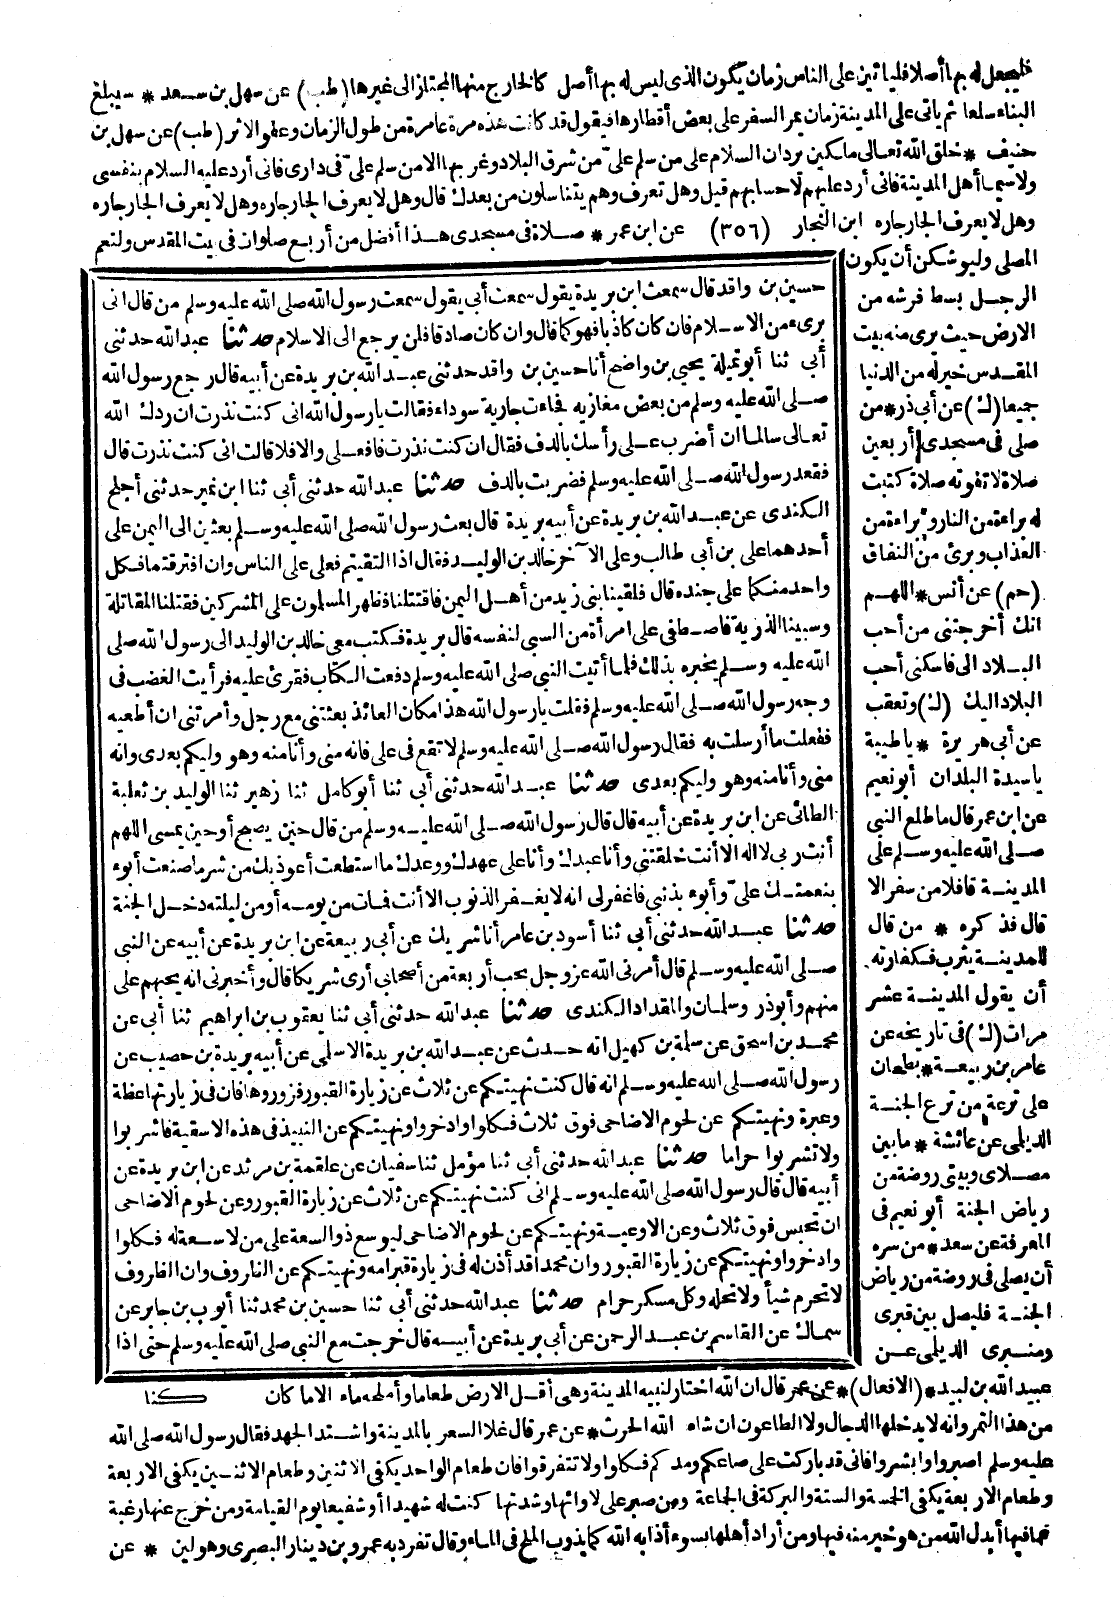 فليجعل له بها أصلا فليأتين على الناس زمان يكون الذى ليس له بها أصل كالخارج منها المجتاز الى غيرها (طب) عن سهل بن سعد * سيبلغ
البناء سلعا ثم يأتى على المدينة زمان يمر السفر على بعض أقطارها فيقول قد كانت هذه مرة عامرة من طول الزمان وعفو الاثر (طب) عن سهل بن
حنيف * خلق الله تعالى ملكين يردان السلام على من سلم علىّ من شرق البلاد وغربها الا من سلم علىّ فى دارى فانى أرد عليه السلام بنفسى
ولا سيما أهل المدينة فانى أرد عليهم لا حسابهم قيل وهل تعرف وهم يتناسلون من بعدك قال وهل لا يعرف الجار جاره وهل لا يعرف الجار جاره
وهل لا يعرف الجار جاره ابن النجار (٣٥٦) عن ابن عمر * صلاة فى مسجدى هذا أفضل من أربع صلوات فى بيت المقدس ولنعم
المصلى وليوشكن أن يكون
الرجل بسط فرشه من
الارض حيث يرى منه بيت
المقدس خير له من الدنيا
جميعا (ك) عن أبى ذر * من
صلى فى مسجدى أربعين
صلاة لا تفوته صلاة كتبت
له براءة من النار وبراءة من
العذاب وبرئ من النفاق
(حم) عن أنس * اللهم
انك أخرجتنى من أحب
البلاد الى فاسكنى أحب
البلاد اليك (ك) وتعقب
عن أبى هريرة * يا طيبة
يا سيدة البلدان أبو نعيم
عن ابن عمر قال ما طلع النبى
صلى الله عليه وسلم على
المدينة قافلا من سفر الا
قال فذكره * من قال
للمدينة يثرب فكفارته
أن يقول المدينة عشر
مرات (ك) فى تاريخه عن
عامر بن ربيعة * بطحان
على ترعة من ترع الجنة
الديلى عن عائشة * ما بين
مصلاى وبيتى روضة من
رياض الجنة أبو نعيم فى
المعرفة عن سعد * من سره
أن يصلى فى روضة من رياض
الجنة فليصل بين قبرى
ومنبرى الديلى عن
حسين بن واقد قال سمعت ابن بريدة يقول سمعت أبى يقول سمعت رسول الله صلى الله عليه وسلم من قال انى
برىء من الاسلام فان كان كاذبا فهو كما قال وان كان صادقا فلن يرجع الى الاسلام حدثنا عبد الله حدثنى
أبى ثنا أبو تميلة يحيى بن واضح أنا حسين بن واقد حدثنى عبد الله بن بريدة عن أبيه قال رجع رسول الله
صلى الله عليه وسلم من بعض مغازيه فجاءت جارية سوداء فقالت يا رسول الله انى كنت نذرت ان ردك الله
تعالى سالما ان أضرب على رأسك بالدف فقال ان كنت نذرت فافعلى والا فلا قالت انى كنت نذرت قال
فقعد رسول الله صلى الله عليه وسلم فضربت بالدف حدثنا عبد الله حدثنى أبى ثنا ابن نمير حدثنى أجلح
الكندى عن عبد الله بن بريدة عن أبيه بريدة قال بعث رسول الله صلى الله عليه وسلم بعثين الى اليمن على
أحدهما على بن أبى طالب وعلى الآخر خالد بن الوليد فقال اذا التقيتم فعلى على الناس وان افترقتما فكل
واحد منكما على جنده قال فلقينا بنى زيد من أهل اليمن فاقتتلنا فظهر المسلمون على المشركين فقتلنا المقاتلة
وسبينا الذرية فاصطفى على امرأة من السبى لنفسه قال بريدة فكتب معى خالد بن الوليد الى رسول الله صلى
الله عليه وسلم يخبره بذلك فلما أتيت النبى صلى الله عليه وسلم دفعت الكتاب فقرئ عليه فرأيت الغضب فى
وجه رسول الله صلى الله عليه وسلم فقلت يا رسول الله هذا مكان العائذ بعثتنى مع رجل وأمرتنى ان أطيعه
ففعلت ما أرسلت به فقال رسول الله صلى الله عليه وسلم لا تقع فى على فانه منى وأنا منه وهو وليكم بعدى وانه
منى وأنا منه وهو وليكم بعدى حدثنا عبد الله حدثنى أبى ثنا أبو كامل ثنا زهير ثنا الوليد بن ثعلبة
الطائى عن ابن بريدة عن أبيه قال قال رسول الله صلى الله عليه وسلم من قال حين يصبح أو حين يمسى اللهم
أنت ربى لا اله الا أنت خلقتنى وأنا عبدك وأنا على عهدك ووعدك ما استطعت أعوذ بك من شر ما صنعت أبوء
بنعمتك علىّ وأبوء بذنبى فاغفر لى انه لا يغفر الذنوب الا أنت فمات من يومه أو من ليلته دخل الجنة
حدثنا عبد الله حدثنى أبى ثنا أسود بن عامر أنا شريك عن أبى ربيعة عن ابن بريدة عن أبيه عن النبى
صلى الله عليه وسلم قال أمرنى الله عز وجل بحب أربعة من أصحابى أرى شريكا قال وأخبرنى انه يحبهم على
منهم وأبو ذر وسلمان والمقداد الكندى حدثنا عبد الله حدثنى أبى ثنا يعقوب بن ابراهيم ثنا أبى عن
محمد بن اسحق عن سلمة بن كهيل انه حدث عن عبد الله بن بريدة الاسلمى عن أبيه بريدة بن حصيب عن
رسول الله صلى الله عليه وسلم انه قال كنت نهيتكم عن ثلاث عن زيارة القبور فزوروها فان فى زيارتها عظة
وعبرة ونهيتكم عن لحوم الاضاحى فوق ثلاث فكلوا وادخروا ونهيتكم عن النبيذ فى هذه الاسقية فاشربوا
ولا تشربوا حراما حدثنا عبد الله حدثنى أبى ثنا مؤمل ثنا سفيان عن علقمة بن مرثد عن ابن بريدة عن
أبيه قال قال رسول الله صلى الله عليه وسلم انى كنت نهيتكم عن ثلاث عن زيارة القبور وعن لحوم الاضاحى
ان تحبس فوق ثلاث وعن الاوعية ونهيتكم عن لحوم الاضاحى ليوسع ذو السعة على من لا سعة له فكلوا
وادخروا ونهيتكم عن زيارة القبور وان محمدا قد أذن له فى زيارة قبر امه ونهيتكم عن الظروف وان الظروف
لا تحرم شيأ ولا تحله وكل مسكر حرام حدثنا عبد الله حدثنى أبى ثنا حسين بن محمد ثنا أيوب بن جابر عن
سماك عن القاسم بن عبد الرحمن عن أبى بريدة عن أبيه قال خرجت مع النبى صلى الله عليه وسلم حتى اذا
عبيد الله بن لبيد * (الافعال) * عن عمر قال ان الله اختار لنبيه المدينة وهى أقل الارض طعاما وأملحه ماء الا ما كان كنا
من هذا التمر وانه لا يدخلها الدجال ولا الطاعون ان شاء الله الحرث * عن عمر قال غلا السعر بالمدينة واشتد الجهد فقال رسول الله صلى الله
عليه وسلم اصبروا وابشروا فانى قد باركت على صاعكم ومدكم فكلوا ولا تتفرقوا فان طعام الواحد يكفى الاثنين وطعام الاثنين يكفى الاربعة
وطعام الاربعة يكفى الخمسة والستة والبركة فى الجماعة ومن صبر على لاوائها وشدتها كنت له شهيدا أو شفيعا يوم القيامة ومن خرج عنها رغبة
عما فيها أبدل الله من هو خير منه فيها ومن أراد أهلها بسوء أذابه الله كما يذوب الملح فى الماء وقال تفرد به عمرو بن دينار البصرى وهو لين * عن